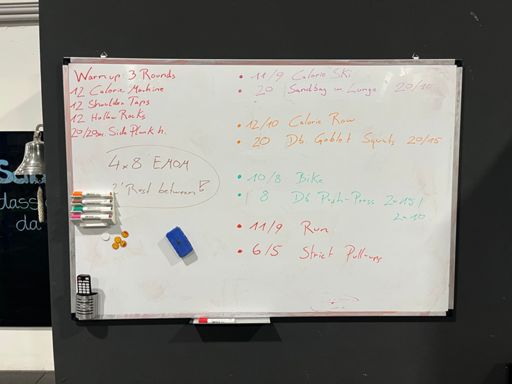 Warm up: 3 Rounds
12 Calorie Machine
12 Shoulder Taps
12 Hollow Rocks
20/20s. Side Plank h.
4x8 EMOM
2' Rest between!
• 11/9 Calorie Ski
• 20 Sandbag Lunge 20/10
• 12/10 Calorie Row
• 20 Db Goblet Squats 20/15
• 10/8 Bike
• 8 Db Push-Press 2x15/
2x10
• 11/9 Run
• 6/5 Strict Pull-ups
dass
da